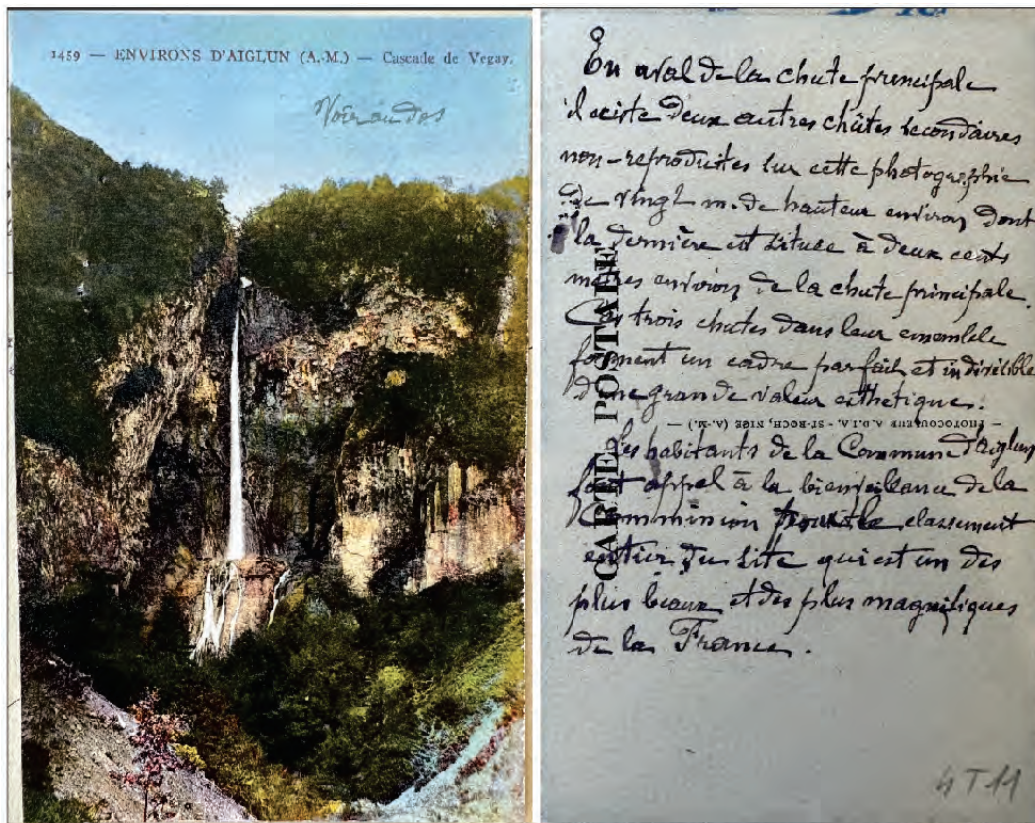 1459 — ENVIRONS D'AIGLUN (A.-M.) — Cascade de Vegay.
Voir au dos
En aval de la chute principale
il existe deux autres chûtes secondaires
non-reproduites sur cette photographie
de vingt m. de hauteur environ dont
la dernière est située à deux cents
mètres environ de la chute principale
Ces trois chutes dans leur ensemble
forment un cadre parfait et indivisible
d'une grande valeur esthétique.
— PHOTOCOULEUR A.D.I.A. - ST-ROCH, NICE (A.-M.) —
Les habitants de la Commune d'Aiglun
font appel à la bienveillance de la
Commission pour le classement
entier du site qui est un des
plus beaux et des plus magnifiques
de la France.
CARTE POSTALE
4 T 11